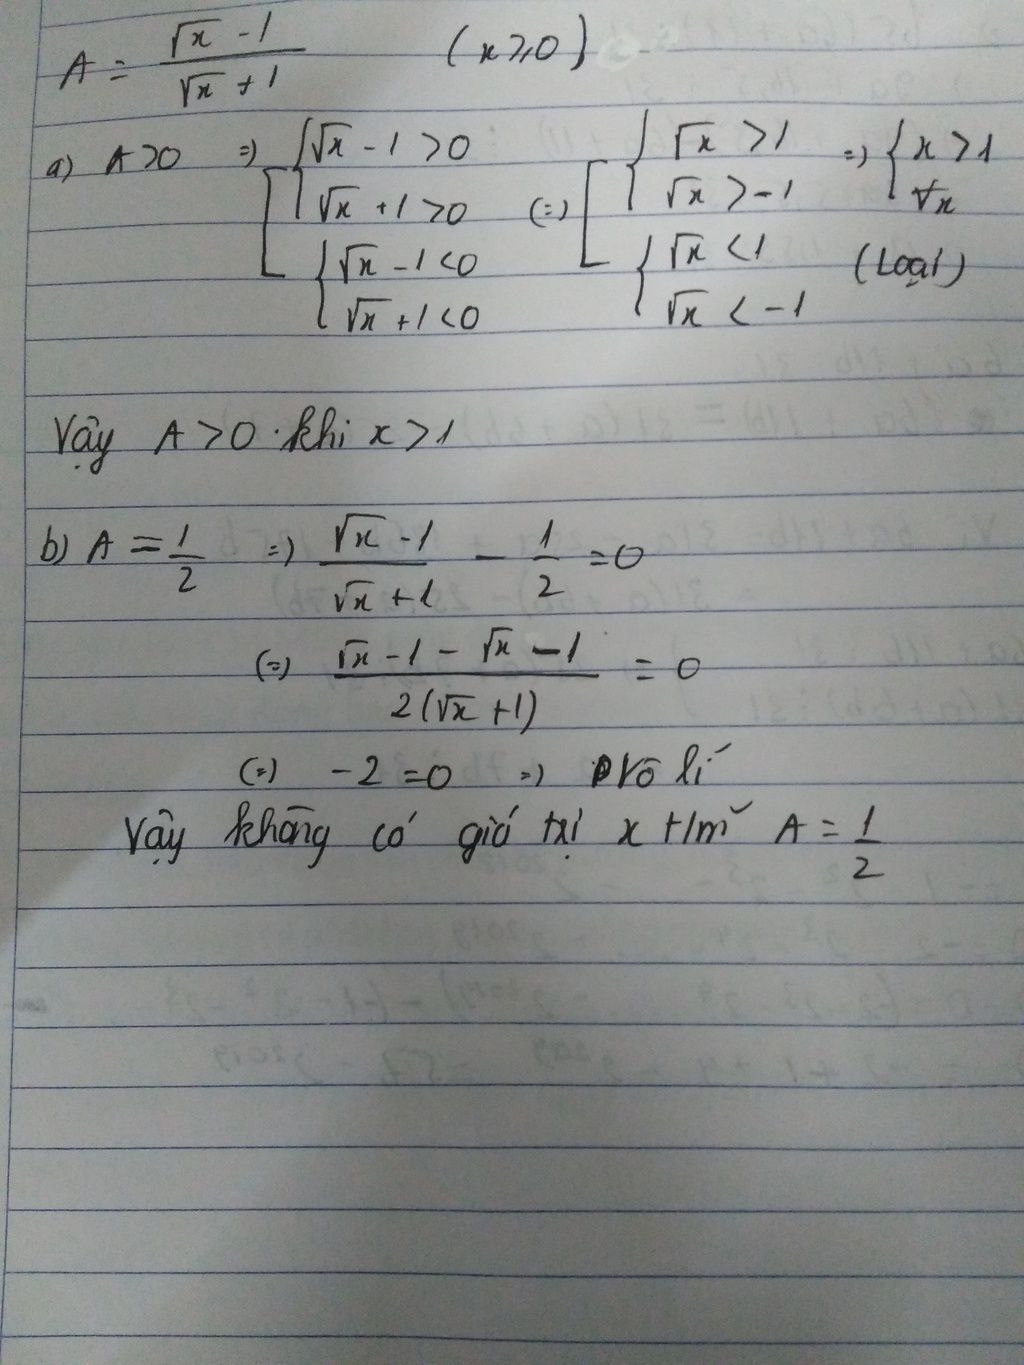 A = (√x - 1)/(√x + 1) (x ≥ 0)
a) A > 0 => [ { √x - 1 > 0 (=) [ { √x > 1 => { x > 1
√x + 1 > 0 √x > -1 ∀x
{ √x - 1 < 0 { √x < 1 (Loại)
√x + 1 < 0 √x < -1
Vậy A > 0 khi x > 1
b) A = 1/2 => (√x - 1)/(√x + 1) - 1/2 = 0
(=) (√x - 1 - √x - 1)/(2(√x + 1)) = 0
(=) -2 = 0 => vô lí
Vậy không có giá trị x t/m A = 1/2